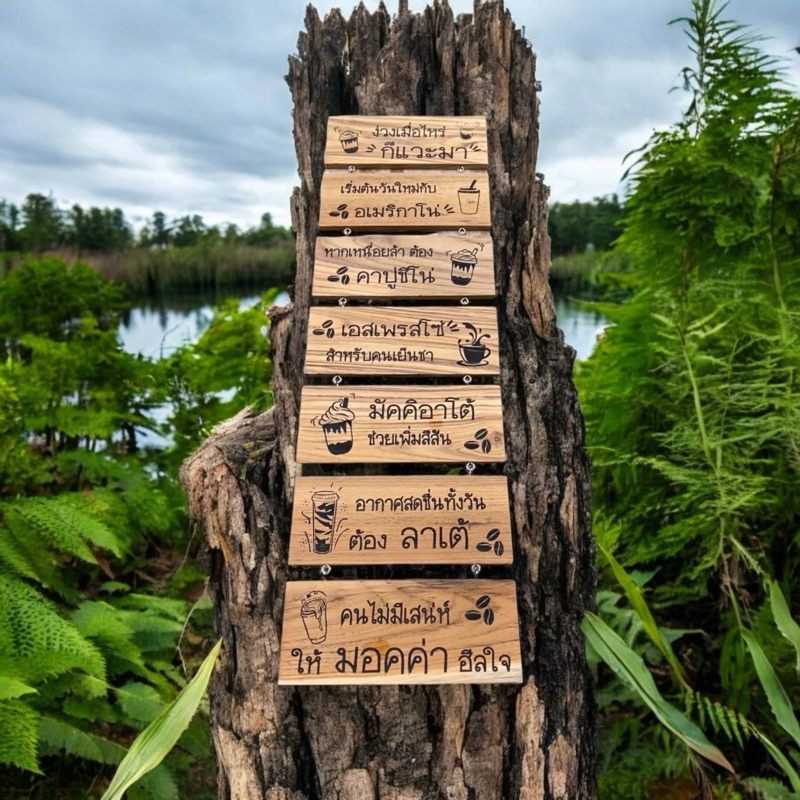 ง่วงเมื่อไหร่
กีแวะมา
เริ่มต้นวันใหม่กับ
อเมริกาโน่
หากเหนื่อยล้า ต้อง
คาปูชิโน่
เอสเพรสโซ่
สำหรับคนเย็นชา
มัคคิอาโต้
ช่วยเพิ่มสีสัน
อากาศสดชื่นทั้งวัน
ต้อง ลาเต้
คนไม่มีเสน่ห์
ให้ มอคค่า ฮีลใจ